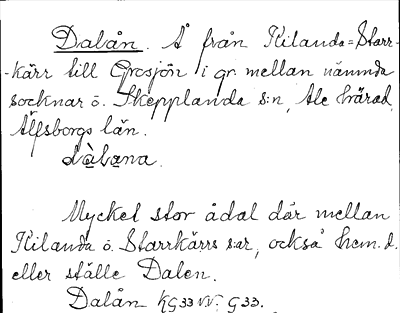 Dalån. Å från Kilanda=Starr-
-kärr till Grosjön i gr. mellan nämnda
socknar o. Skepplanda s:n, Ale härad,
Älfsborgs län.
dàḷana
Mycket stor ådal där mellan
Kilanda o. Starrkärrs s:ar, också hem.d.
eller ställe Dalen.
Dalån KG33 NV. G33.